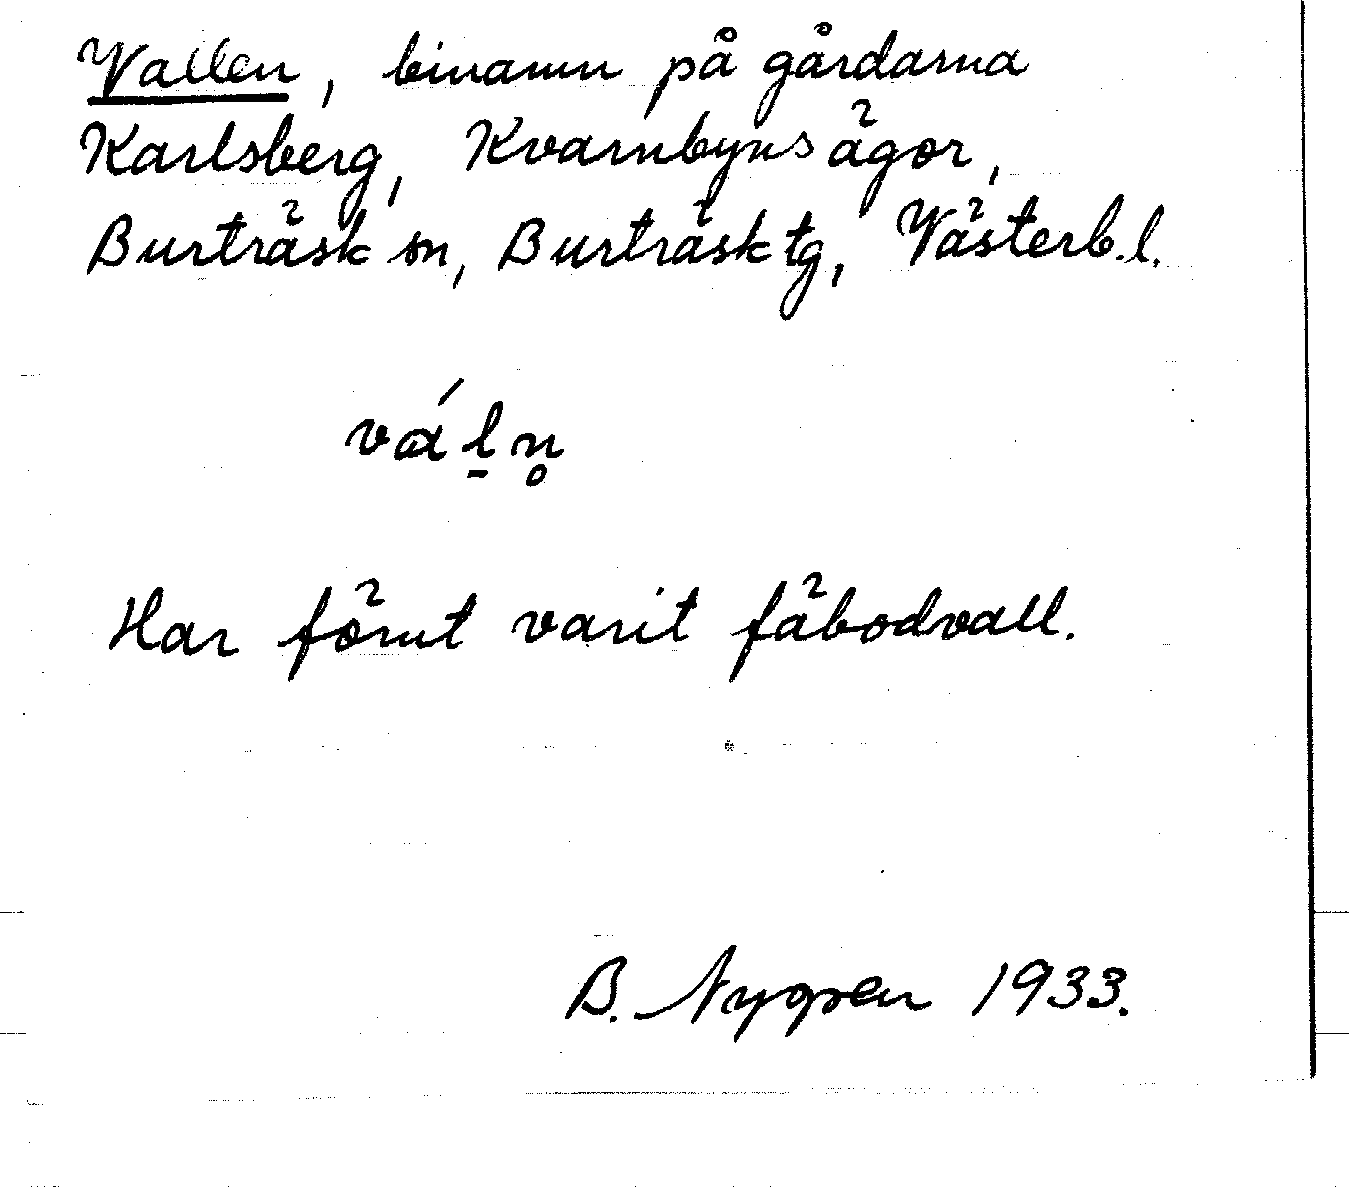 Vallen, binamn på gårdarna
Karlsberg, Kvarnbyns ägor,
Burträsk sn, Burträsk tg, Västerb.l.
vá l̠ n̥
Har förut varit fäbodvall.
B. Nygren 1933.